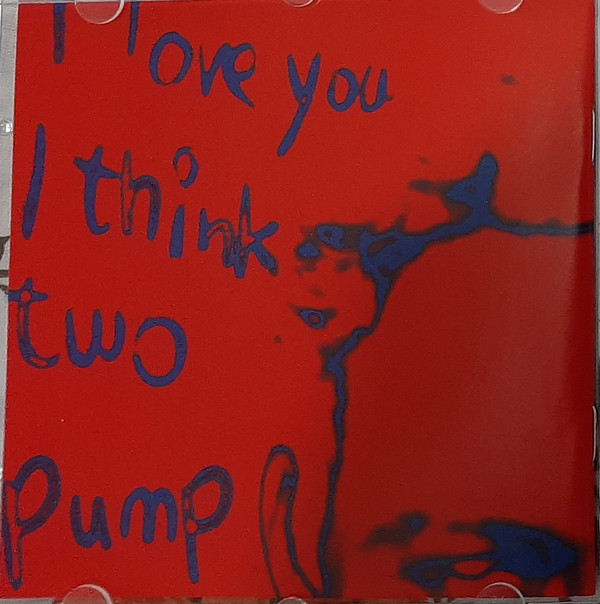 I love you
I think
two
pump